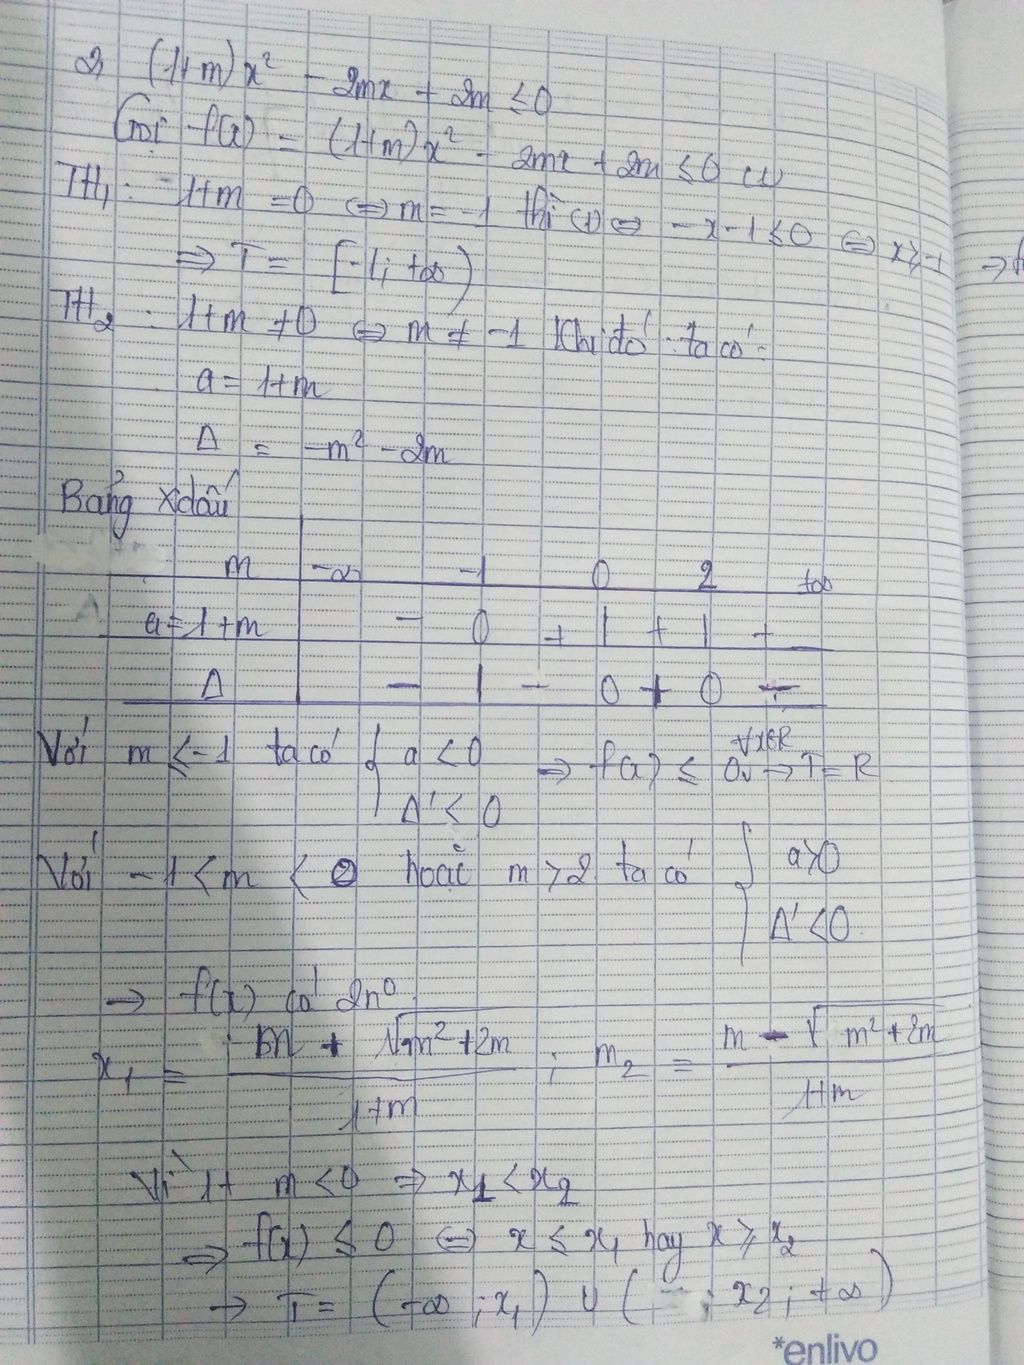 2, (1+m)x² - 2mx + 2m ≤ 0
Gọi f(x) = (1+m)x² - 2mx + 2m ≤ 0 (1)
TH₁: 1+m = 0 ⇔ m = -1 thì (1) ⇔ -x-1 ≤ 0 ⇔ x ≥ -1
⇒ T = [-1; +∞)
TH₂: 1+m ≠ 0 ⇔ m ≠ -1 Khi đó: ta có:
a = 1+m
Δ = -m² - 2m
Bảng xdấu
m -∞ -1 0 2 +∞
a = 1+m - 0 + | + | +
Δ - | - 0 + 0 -
Với m < -1 ta có { a < 0 ⇒ f(x) ≤ 0, ∀x∈R → T = R
Δ' < 0
Với -1 < m < 0 hoặc m > 2 ta có { a > 0
Δ' < 0
→ f(x) có 2n⁰
x₁ = m + √m² + 2m / 1+m ; m₂ = m - √m² + 2m / 1+m
Vì 1+ m < 0 ⇒ x₁ < x₂
⇒ f(x) ≤ 0 ⇔ x ≤ x₁ hay x ≥ x₂
→ T = (-∞; x₁) ∪ ( ; x₂; +∞)
*enlivo